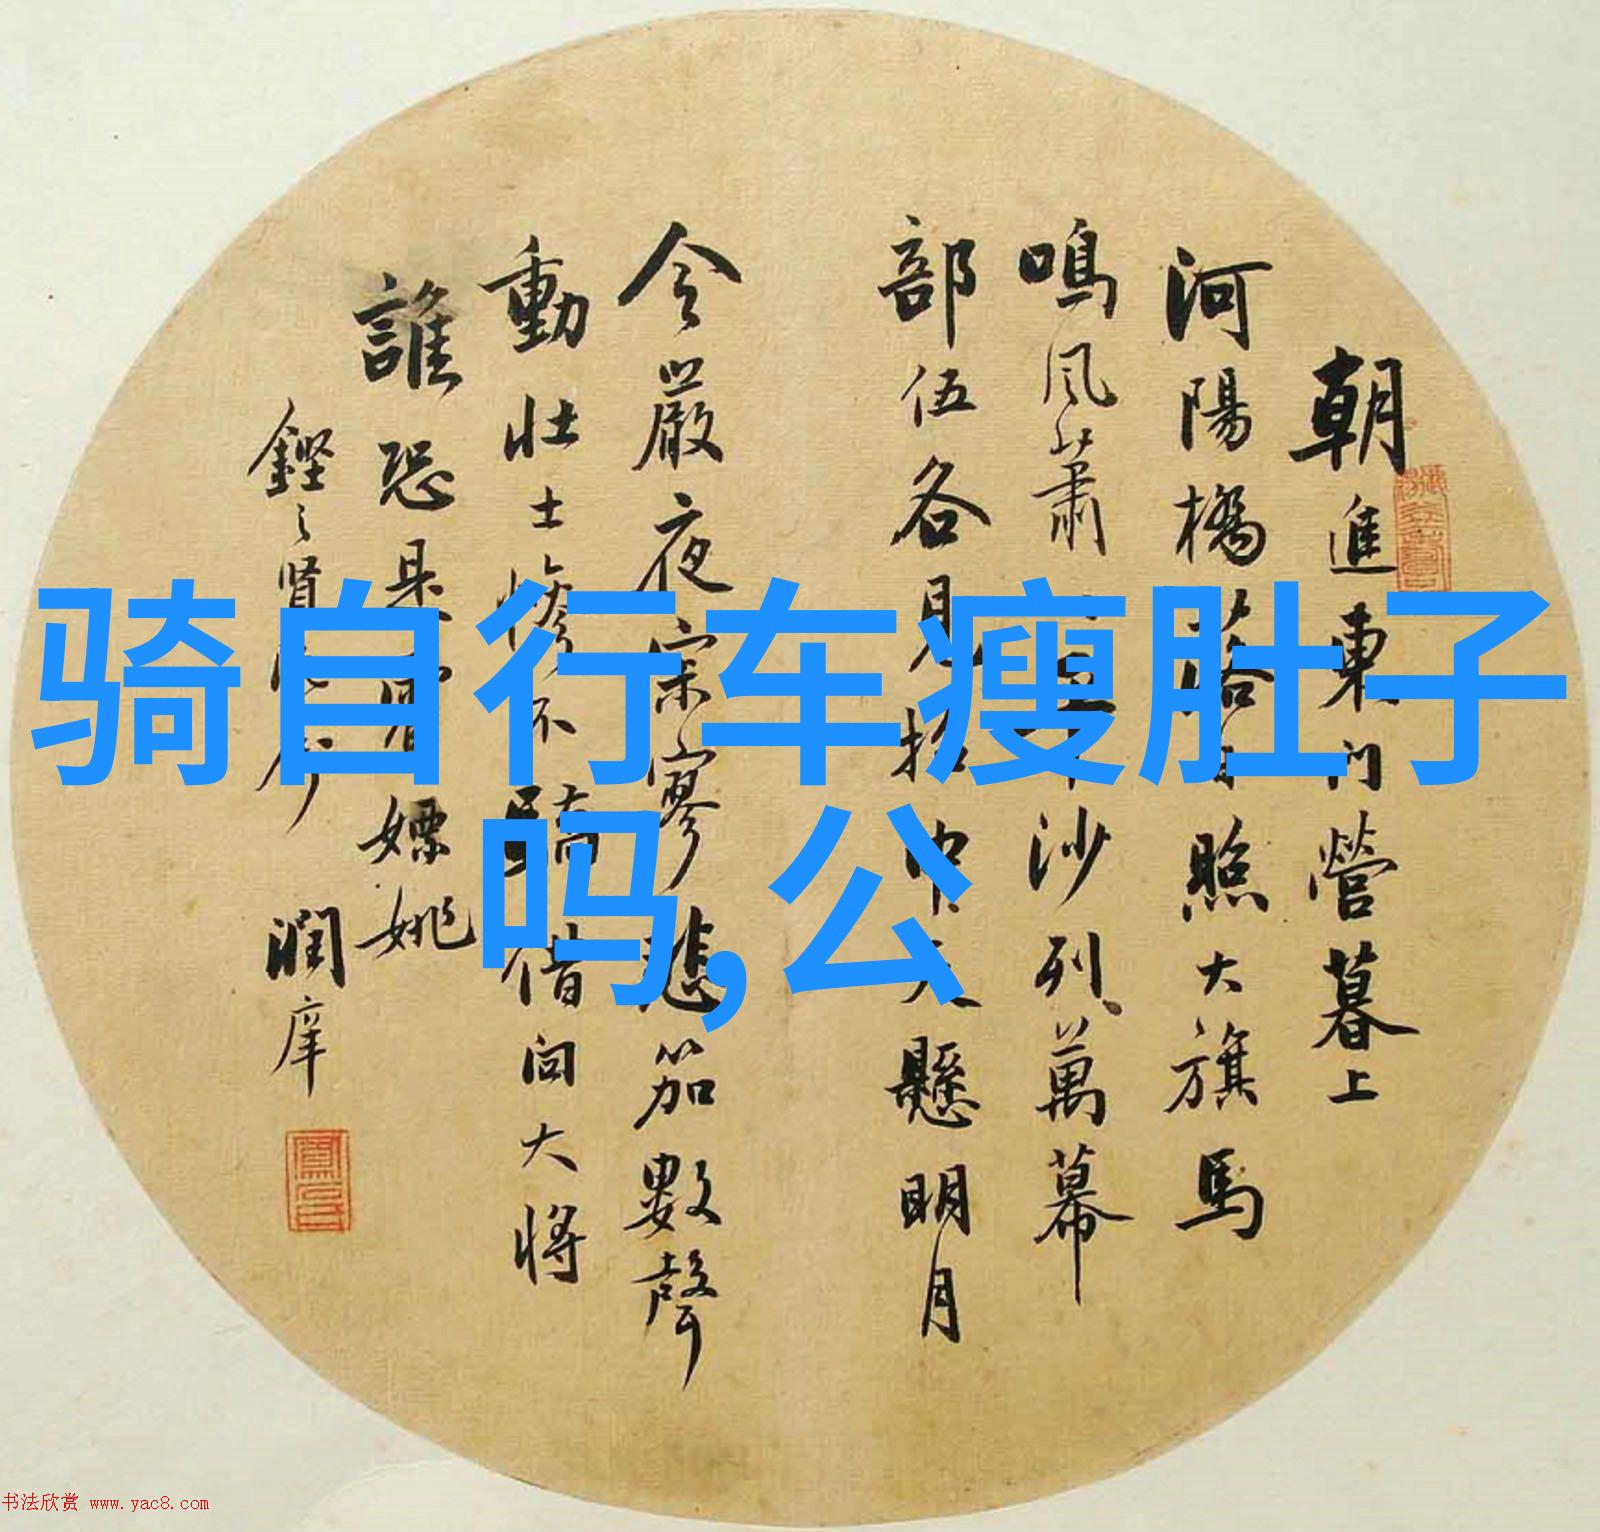 骑自行车瘦肚子
吗,公
朝進東門營暮上
河陽橋落日照大旗馬
鳴風蕭沙列萬幕
部伍各見招中天懸明月
令嚴夜寂寥悲笳數聲
動壯士慘不驕借问大將
誰恐是霍嫖姚
潤庠
书法欣赏 www.yac8.com